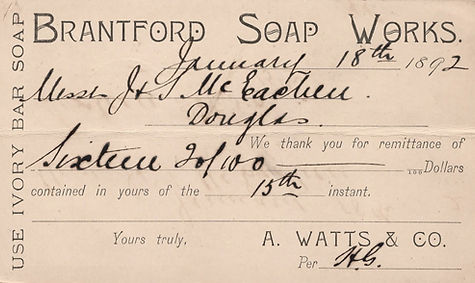 BRANTFORD SOAP WORKS.
January 18th 1892
Messrs J & S McEachern.
Douglas.
We thank you for remittance of
Sixteen 20/100 100 Dollars
contained in yours of the 15th instant.
Yours truly, A. WATTS & CO.
Per H.G.
USE IVORY BAR SOAP